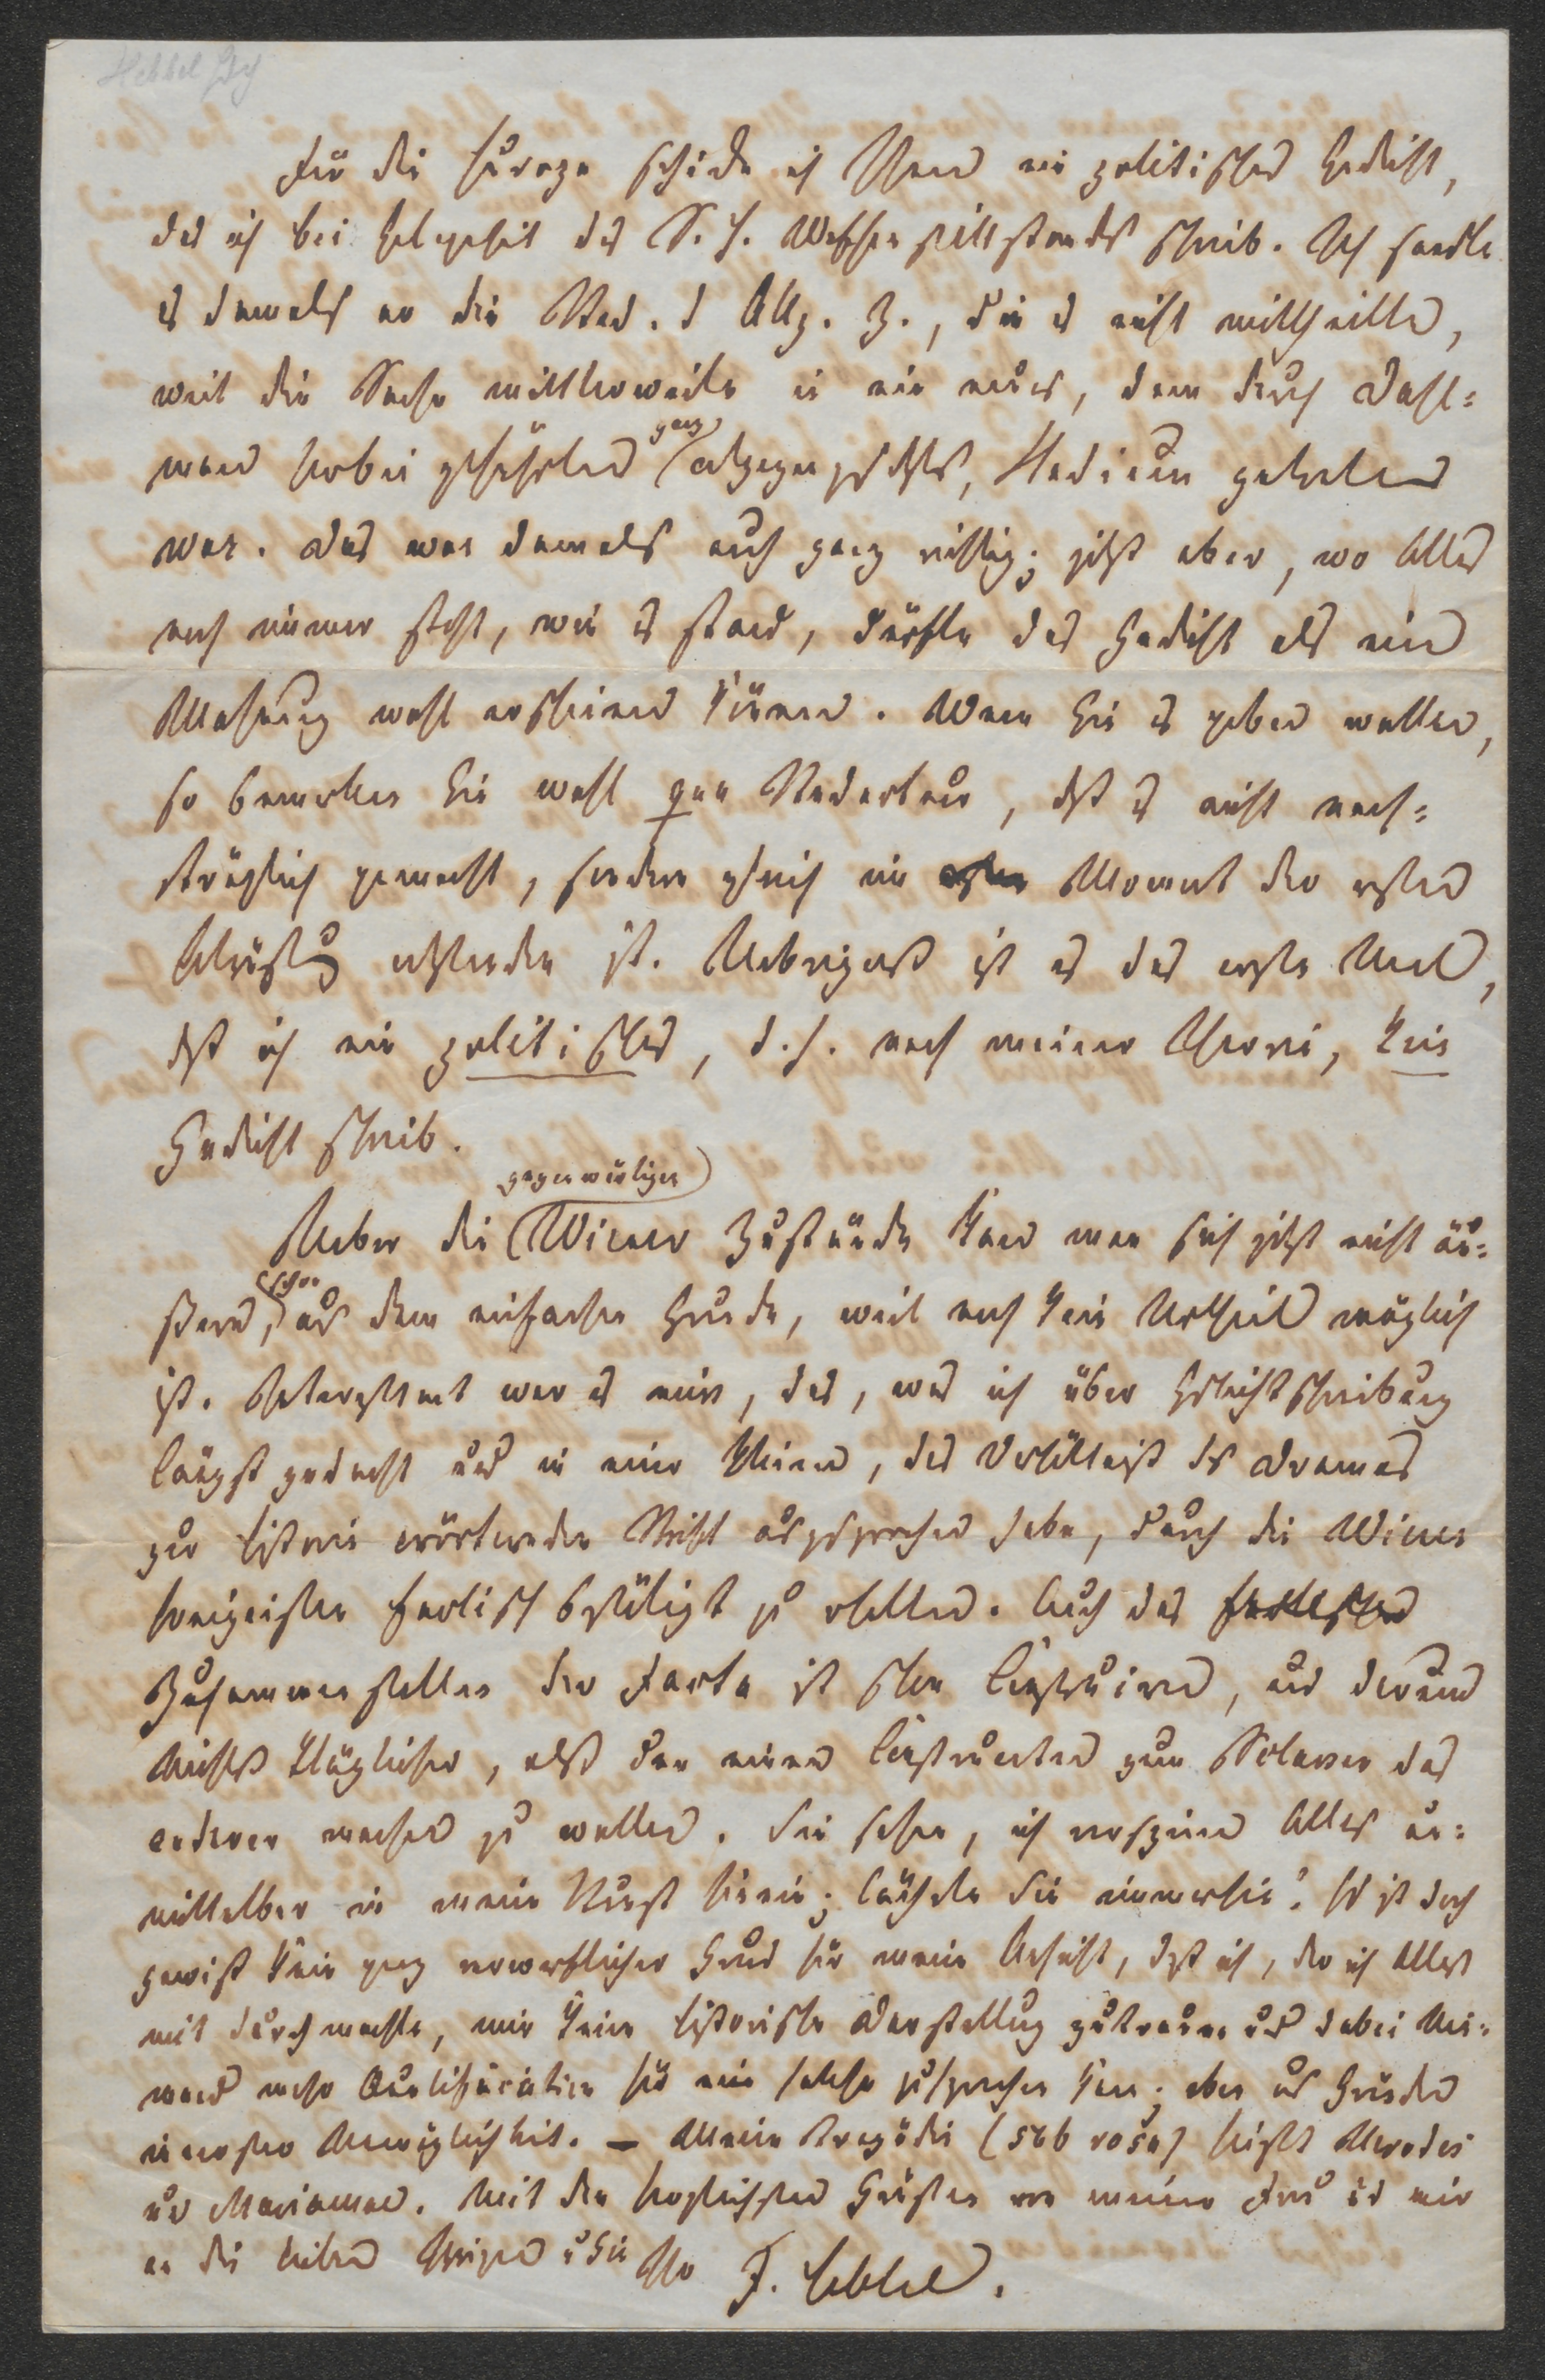 Hebbel Fch
Für die Europa schicke ich Ihnen ein politisches Gedicht,
das ich bei Gelegenheit des S. H. Waffenstillstands schrieb. Ich sandte
es damals an die Red. d Allg. Z., die es nicht mittheilte,
weil die Sache mittlerweile in ein neues, dem durch Dahl-
mann herbei geführten ganz entgegengesetztes, Stadium getreten
war. Das war damals auch ganz richtig; jetzt aber, wo Alles
noch immer steht, wie es stand, dürfte das Gedicht als eine
Mahnung wohl erscheinen können. Wenn Sie es geben wollen,
so bemerken Sie wohl qua Redacteur, daß es nicht nach-
träglich gemacht, sondern gleich im ersten Moment der ersten
Entrüstung entstanden ist. Uebrigens ist es das erste Mal,
daß ich ein politisches, d. h. nach meiner Theorie, kein
Gedicht schrieb.
Ueber die gegenwärtigen Wiener Zustände kann man sich jetzt nicht äu-
ßern, schon aus dem einfachen Grunde, weil noch kein Urtheil möglich
ist. Interessant war es mir, das, was ich über Geschichtschreibung
längst gedacht und in einer kleinen, das Verhältniß des Dramas
zur Historie erörternden Schrift ausgesprochen habe, durch die Wiener
Ereignisse factisch bestätigt zu erhalten. Auch das
Zusammenstellen der Facta ist schon Construiren, und darum
Nichts kläglicher, als den einen Constructeur zum Sclaven des
anderen machen zu wollen. Sie sehen, ich verspinne Alles un-
mittelbar in meine Kunst hinein; lächeln Sie immerhin! Es ist doch
gewiß kein ganz verwerflicher Grund für meine Ansicht, daß ich, der ich Alles
mit durchmachte, mir keine historische Darstellung zutraue und dabei Nie-
mand mehr Qualification für eine solche zusprechen kann; aber aus Gründen
innerster Unmöglichkeit. – Meine Tragödie (sub rosa) heißt Herodes
und Mariamne. Mit den herzlichsten Grüßen von meiner Frau und mir
an die lieben Ihrigen u Sie Ihr F. Hebbel.